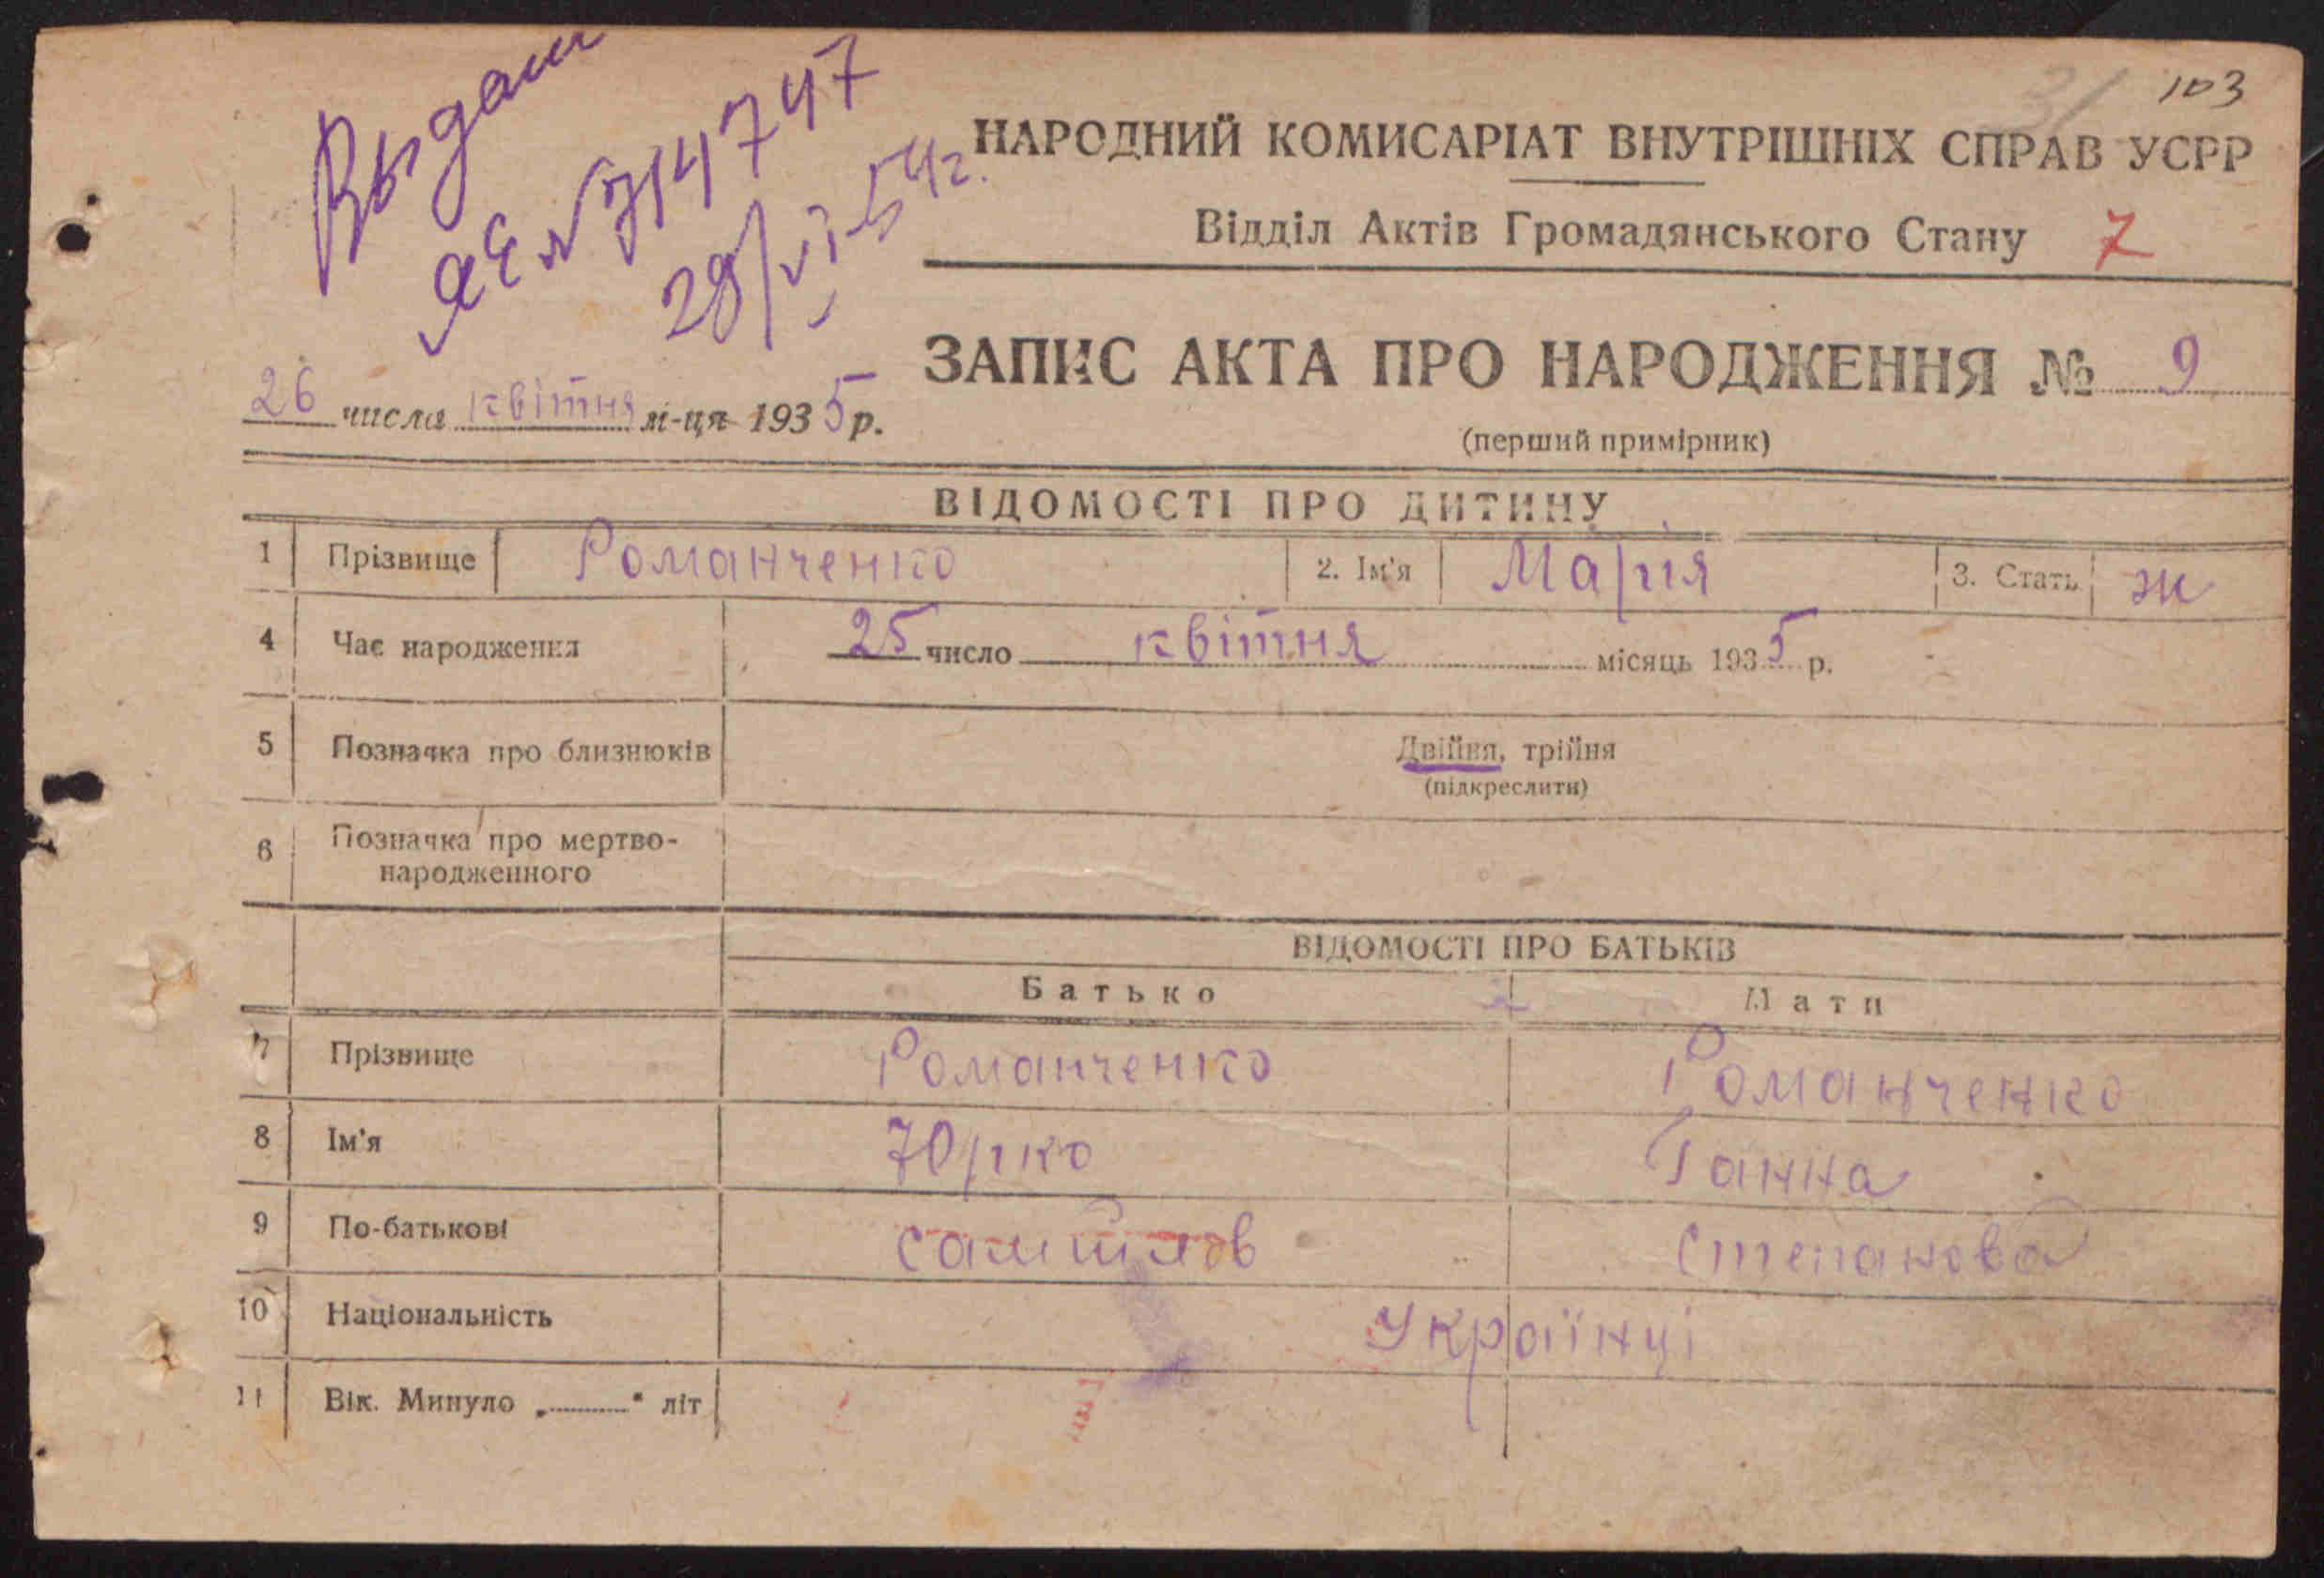 103
31
Выдан
НАРОДНИЙ КОМИСАРІАТ ВНУТРІШНІХ СПРАВ УСРР
28/VI-54г.
Відділ Актів Громадянського Стану 7
ЗАПИС АКТА ПРО НАРОДЖЕННЯ № 9
26 числа квітня м-ця 1935 р.
(перший примірник)
ВІДОМОСТІ ПРО ДИТИНУ
1 Прізвище Романченко 2. Ім'я Марія 3. Стать ж
4 Час народження 25 число квітня місяць 1935 р.
5 Позначка про близнюків Двійня, трійня
(підкреслити)
6 Позначка про мертво-
народженного
ВІДОМОСТІ ПРО БАТЬКІВ
Батько Мати
7 Прізвище Романченко Романченко
8 Ім'я Юрко Ганна
9 По-батькові Степанова
10 Національність Українці
11 Вік. Минуло „ " літ